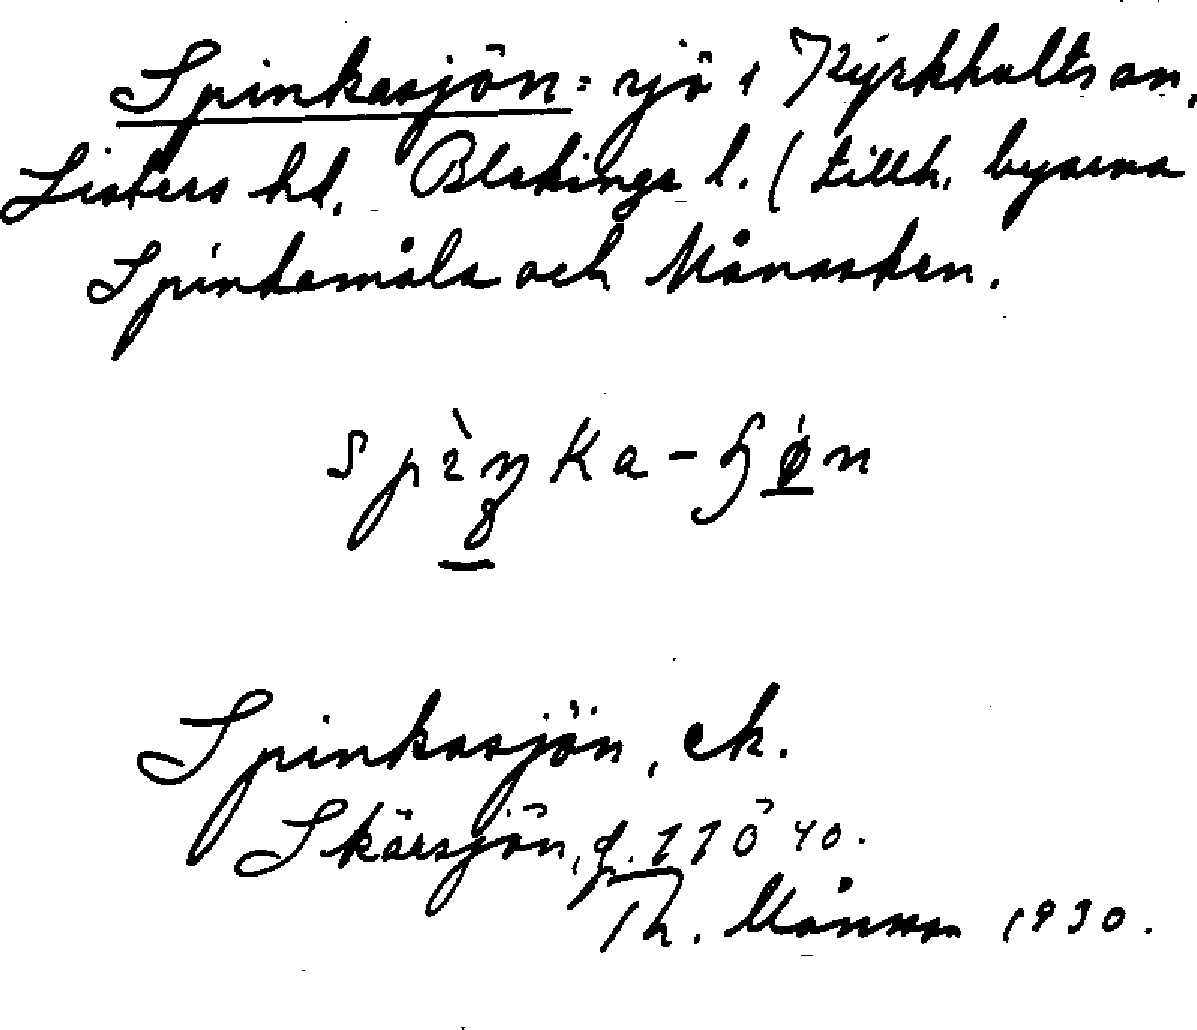 Spinkasjön: sjö i Kyrkhults sn,
Listers hd, Blekinge l. (tillh. byarna
Spinkamåla och Månasken.
Spinkasjön, ek.
Skärsjön, 110 40.
Th. Månsson 1930.